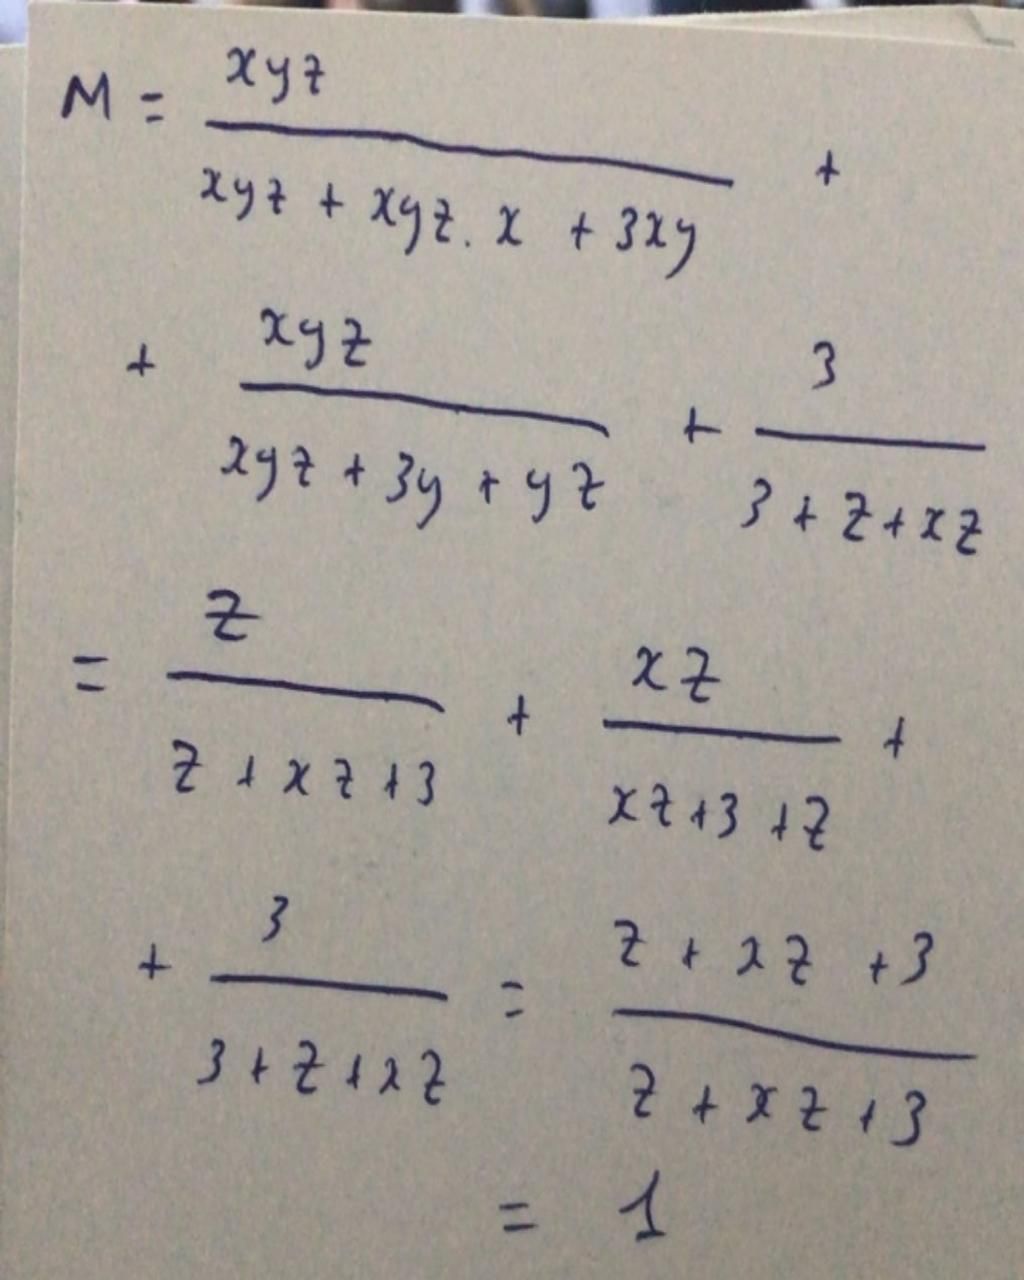 M = \frac{xyz}{xyz + xyz . x + 3xy} +
+ \frac{xyz}{xyz + 3y + yz} + \frac{3}{3 + z + xz}
= \frac{z}{z + xz + 3} + \frac{xz}{xz + 3 + z} +
+ \frac{3}{3 + z + xz} = \frac{z + xz + 3}{z + xz + 3}
= 1